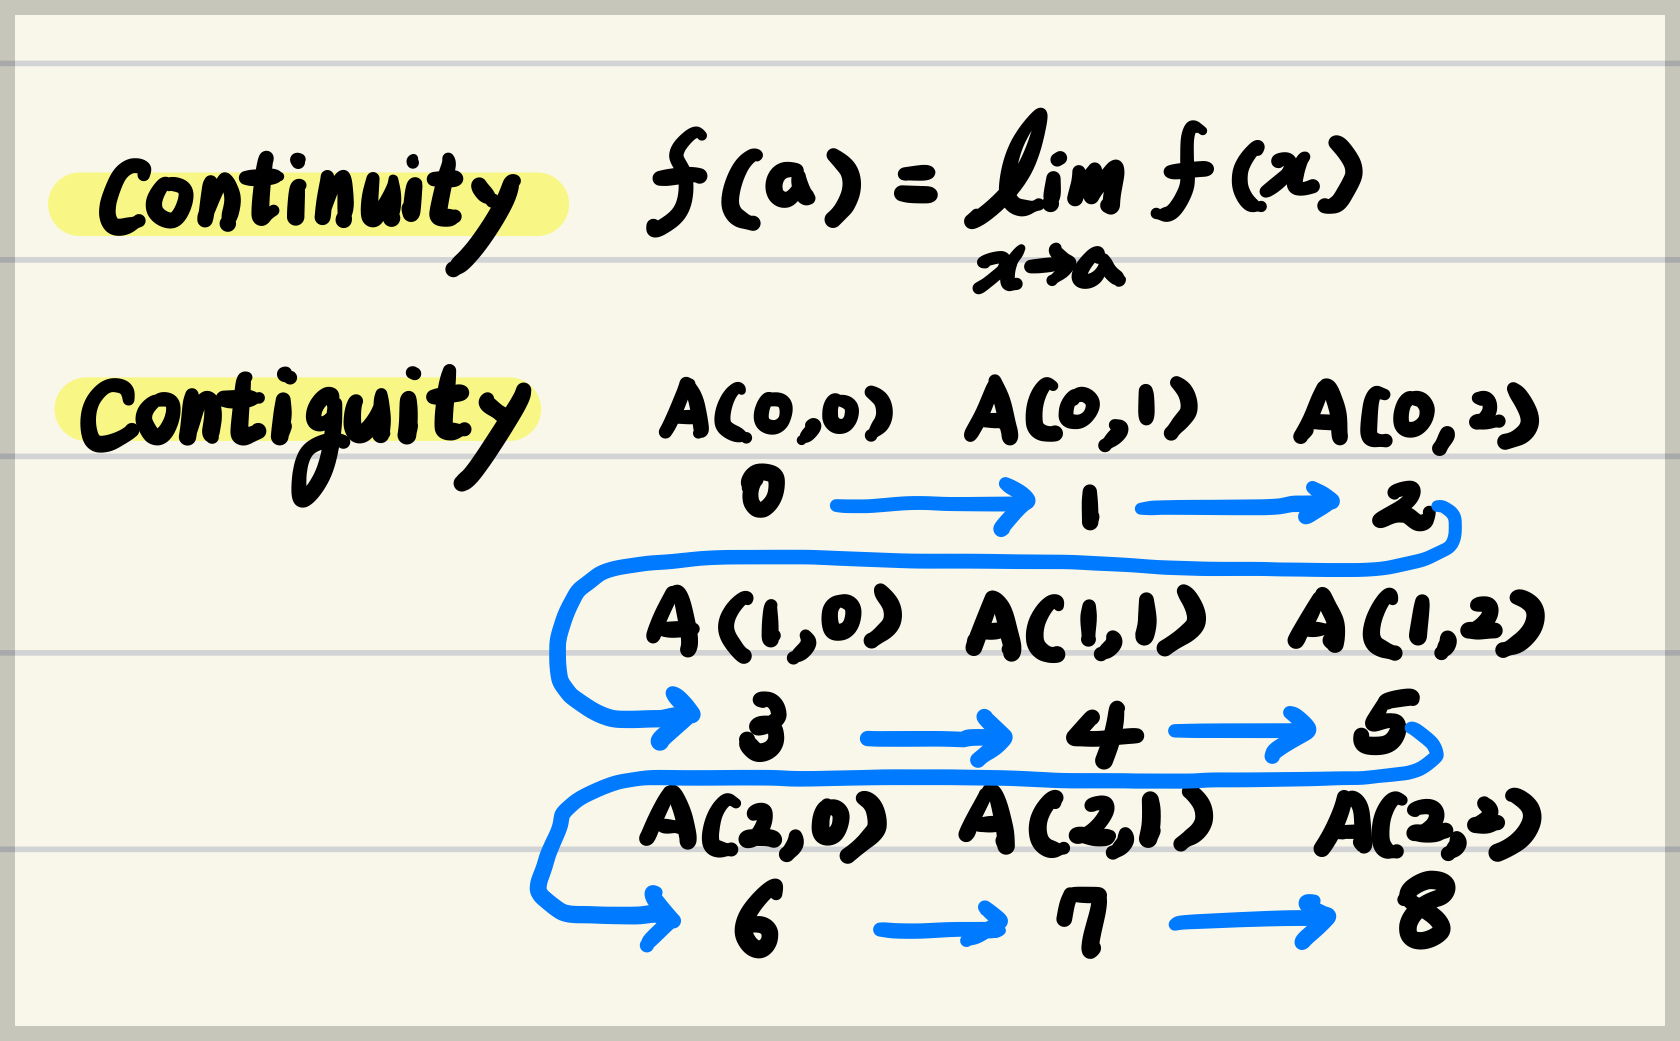 Continuity f(a) = lim f(x)
x→a
Contiguity A(0,0) A(0,1) A(0,2)
0 → 1 → 2
A(1,0) A(1,1) A(1,2)
→ 3 → 4 → 5
A(2,0) A(2,1) A(2,2)
→ 6 → 7 → 8